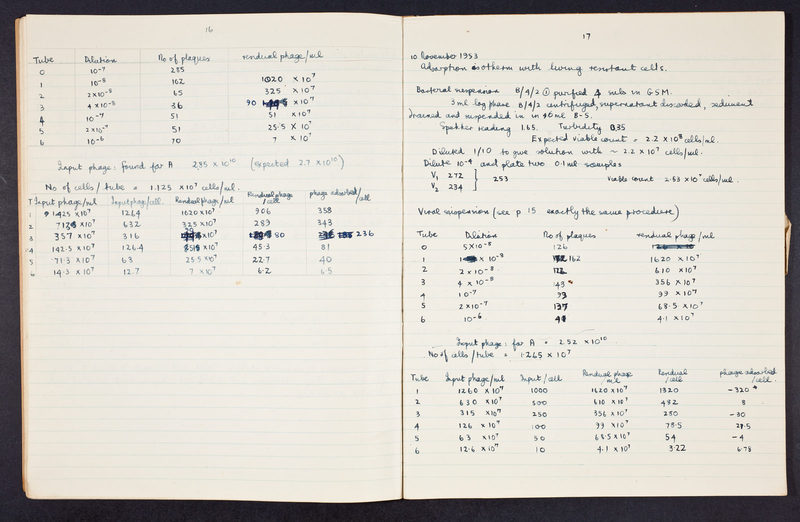 16
Tube Dilution No of plaques residual phage/ml
0 10⁻⁷ 285
1 10⁻⁸ 162 1020 × 10⁷
2 2×10⁻⁸ 65 325 × 10⁷
3 4×10⁻⁸ 36 90 × 10⁷
4 10⁻⁷ 51 51 × 10⁷
5 2×10⁻⁷ 51 25.5 × 10⁷
6 10⁻⁶ 70 7 × 10⁷
Input phage: found for A 285 × 10¹⁰ (expected 2.7 × 10¹⁰)
No of cells / tube = 1.125 × 10⁷ cells/ml.
T Input phage/ml Input phage/cell. Residual phage/ml Residual phage/cell phage adsorbed/cell
1 1425 × 10⁷ 1264 1020 × 10⁷ 906 358
2 × 10⁷ 632 325 × 10⁷ 289 343
3 357 × 10⁷ 316 × 10⁷ 80 236
4 142.5 × 10⁷ 126.4 × 10⁷ 45.3 81
5 71.3 × 10⁷ 63 25.5 × 10⁷ 22.7 40
6 14.3 × 10⁷ 12.7 7 × 10⁷ 6.2 6.5
17
10 November 1953
Adsorption isotherm with living resistant cells.
Bacterial suspension B/4/2 ① purified 4 subs in GSM.
3 ml log phase B/4/2 centrifuged, supernatant discarded, sediment
drained and suspended in in 10 ml B-S.
Spekker reading 1.65. Turbidity 0.35
Expected viable count = 2.2 × 10⁸ cells/ml.
Diluted 1/10 to give solution with ~ 2.2 × 10⁷ cells/ml.
Dilute 10⁻⁴ and plate two 0.1 ml samples
V₁ 272
V₂ 234 } 253 Viable count 2.53 × 10⁷ cells/ml.
Viral suspension (see p 15 exactly the same procedure)
Tube Dilution No of plaques residual phage/ml
0 5×10⁻⁸ 126
1 × 10⁻⁸ 162 1620 × 10⁷
2 2 × 10⁻⁸ 122 610 × 10⁷
3 4 × 10⁻⁸ 143 356 × 10⁷
4 10⁻⁷ 99 99 × 10⁷
5 2×10⁻⁷ 137 68.5 × 10⁷
6 10⁻⁶ 41 4.1 × 10⁷
Input phage: for A = 252 × 10¹⁰
No of cells / tube = 1.265 × 10⁷
Tube Input phage/ml Input/cell Residual phage/ml Residual/cell phage adsorbed/cell.
1 1260 × 10⁷ 1000 1620 × 10⁷ 1320 -320
2 630 × 10⁷ 500 610 × 10⁷ 492 8
3 315 × 10⁷ 250 356 × 10⁷ 280 -30
4 126 × 10⁷ 100 99 × 10⁷ 78.5 21.5
5 63 × 10⁷ 50 68.5 × 10⁷ 54 -4
6 12.6 × 10⁷ 10 4.1 × 10⁷ 3.22 6.78